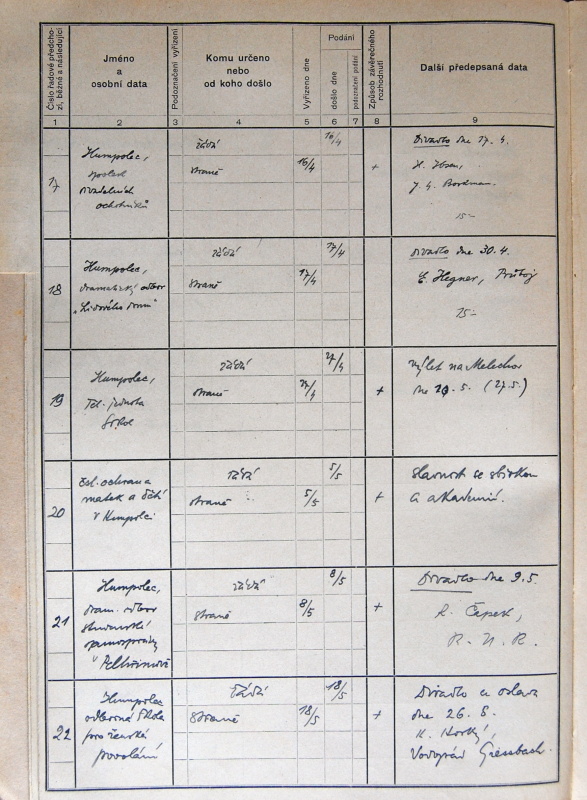 Číslo řadové předcho-
zí, běžné a následující
Jméno
a
osobní data
Podoznačení vyřízení
Komu určeno
nebo
od koho došlo
Vyřízeno dne
Podání
došlo dne
podoznačení podání
Způsob závěrečného
rozhodnutí
Další předepsaná data
1 2 3 4 5 6 7 8 9
17
Humpolec,
spolek
divadelních
ochotníků
žádá
straně
16/4
16/4
+
Divadlo dne 17. 4.
H. Ibsen,
J. G. Borkman.
15.-
18
Humpolec,
dramatický odbor
„Lidového domu"
žádá
straně
17/4
17/4
Divadlo dne 30. 4.
E. Hegner, Průboj
15.-
19
Humpolec,
Těl. jednota
Sokol
žádá
straně
27/4
27/4
+
Výlet na Melechov
dne 20. 5. (27.5.)
20
Čsl. ochrana
matek a dětí
v Humpolci
žádá
straně
5/5
5/5
+
Slavnost se sbírkou
a akademií.
21
Humpolec,
dram. odbor
studentské
samosprávy
v Pelhřimově
žádá
straně
8/5
8/5
+
Divadlo dne 9.5.
K. Čapek,
R. U. R.
22
Humpolec
odborná škola
pro ženská
povolání
žádá
straně
18/5
18/5
+
Divadlo a oslava
dne 26. 5.
K. Horký,
Vodopád Giessbach.